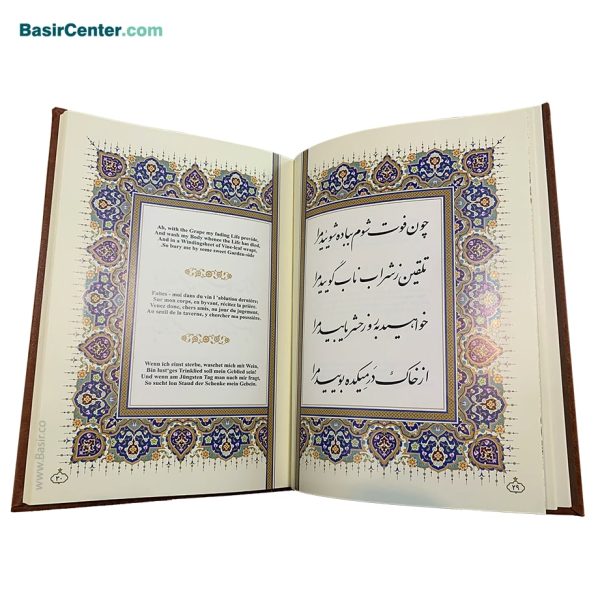 BasirCenter.com
Ah, with the Grape my fading Life provide,
And wash my Body whence the Life has died,
And in a Windingsheet of Vine-leaf wrapt,
.So bury me by some sweet Garden-side
Faites - moi dans du vin l'ablution dernière;
Sur mon corps, en buvant, récitez la prière.
Venez donc, chers amis, au jour du jugement,
Au seuil de la taverne, y chercher ma poussière.
Wenn ich einst sterbe, waschet mich mit Wein,
Bin lust'ges Trinklied soll mein Geblied sein!
Und wenn am Jüngsten Tag man nach mir fragt,
So sucht lon Staud der Schenke mein Gebein.
۳۰
چون فوت شوم بباده شویید مرا
تلقین ز شراب ناب گویید مرا
خواهید به روز حشر یابید مرا
از خاک در میکده بویید مرا
۲۹
www.Basir.co